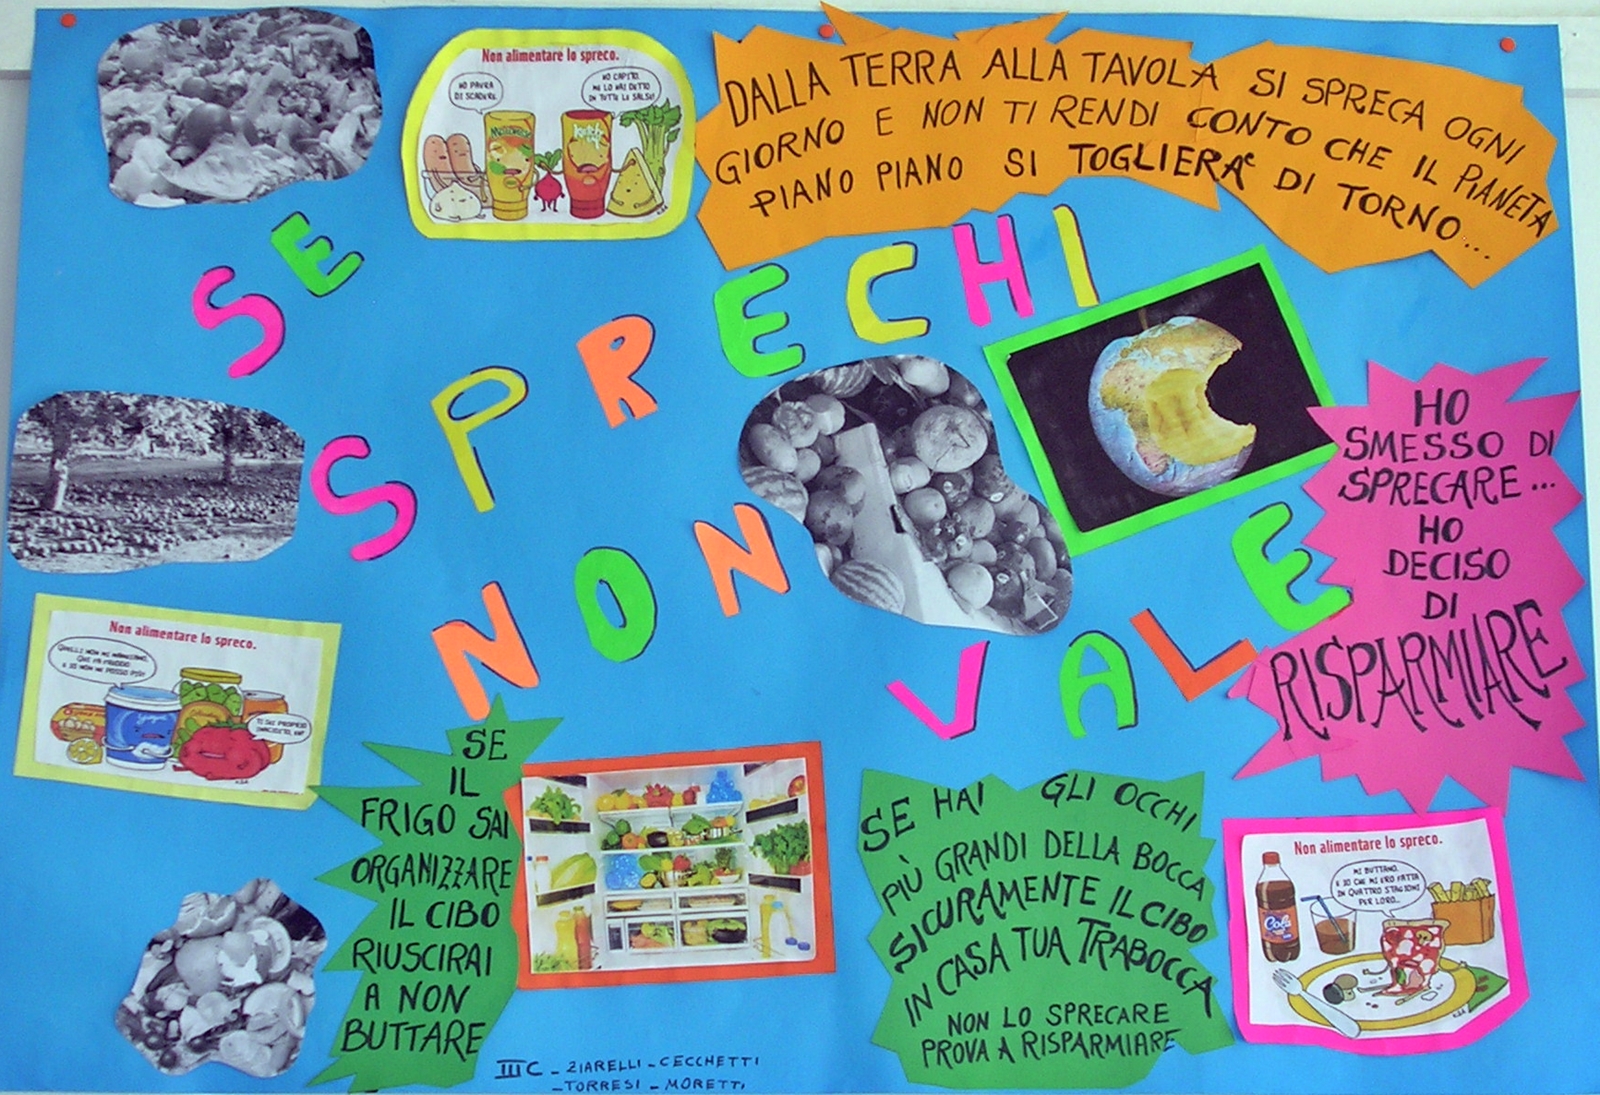 Non alimentare lo spreco.
HO PAURA
DI SCADERE.
HO CAPITO,
ME LO HAI DETTO
IN TUTTE LE SALSE!
Ketch
DALLA TERRA ALLA TAVOLA SI SPRECA OGNI
GIORNO E NON TI RENDI CONTO CHE IL PIANETA
PIANO PIANO SI TOGLIERA' DI TORNO...
SE
SPRECHI
NON VALE
HO
SMESSO DI
SPRECARE...
HO
DECISO
DI
RISPARMIARE
Non alimentare lo spreco.
QUELLI NON MI MANGIANO,
QUI FA FREDDO
E IO NON NE POSSO PIÙ!
TI SEI PROPRIO
INACIDITO, EH?
Yogurt
SE
IL
FRIGO SAI
ORGANIZZARE
IL CIBO
RIUSCIRAI
A NON
BUTTARE
SE HAI GLI OCCHI
PIÙ GRANDI DELLA BOCCA
SICURAMENTE IL CIBO
IN CASA TUA TRABOCCA
NON LO SPRECARE
PROVA A RISPARMIARE
Non alimentare lo spreco.
MI BUTTANO.
E IO CHE MI ERO FATTA
IN QUATTRO STAGIONI
PER LORO...
Cola
III C - ZIARELLI - CECCHETTI
- TORRESI - MORETTI